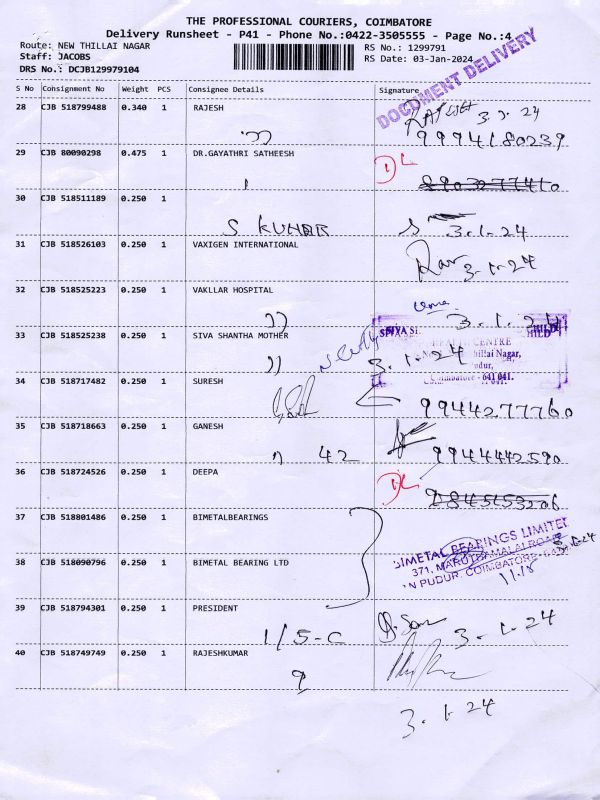 THE PROFESSIONAL COURIERS, COIMBATORE
Delivery Runsheet - P41 - Phone No.:0422-3505555 - Page No.:4
Route: NEW THILLAI NAGAR
Staff: JACOBS
DRS No.: DCJB129979104
RS No.: 1299791
RS Date: 03-Jan-2024
DOCUMENT DELIVERY
S No Consignment No Weight PCS Consignee Details Signature
28 CJB 518799488 0.340 1 RAJESH
3 24
9994180239
29 CJB 80090298 0.475 1 DR.GAYATHRI SATHEESH
DL
30 CJB 518511189 0.250 1
S KUMAR 3.1.24
31 CJB 518526103 0.250 1 VAXIGEN INTERNATIONAL
3.1.24
32 CJB 518525223 0.250 1 VAKLLAR HOSPITAL
3.1.24
33 CJB 518525238 0.250 1 SIVA SHANTHA MOTHER
3.1.24
CHILD
CENTRE
Thillai Nagar,
Coimbatore - 641 041.
34 CJB 518717482 0.250 1 SURESH
9944277760
35 CJB 518718663 0.250 1 GANESH
42 9944442590
36 CJB 518724526 0.250 1 DEEPA
DL
37 CJB 518801486 0.250 1 BIMETALBEARINGS
BIMETAL BEARINGS LIMITED
371, MARUTHAMALAI ROAD
N PUDUR, COIMBATORE-641
3.1.24
38 CJB 518090796 0.250 1 BIMETAL BEARING LTD
39 CJB 518794301 0.250 1 PRESIDENT
1/5-C 3.1.24
40 CJB 518749749 0.250 1 RAJESHKUMAR
9
3.1.24